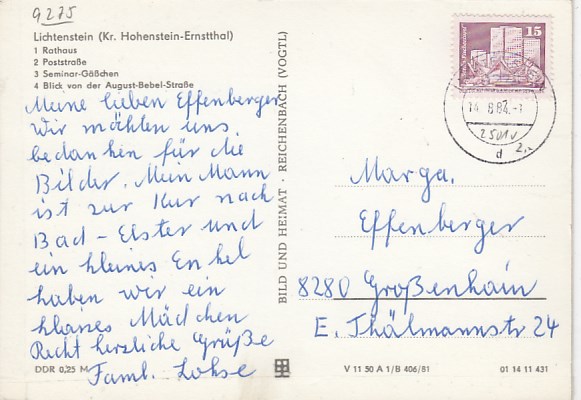 9275
Lichtenstein (Kr. Hohenstein-Ernstthal)
1 Rathaus
2 Poststraße
3 Seminar-Gäßchen
4 Blick von der August-Bebel-Straße
Meine lieben Effenberger
Wir möhten uns
bedanken für die
Bilder. Mein Mann
ist zur Kur nach
Bad-Elster und
ein kleines Enkel
haben wir ein
kleines Mädchen
Recht herzliche Grüße
Faml. Lohse
DDR 0,25 M
BILD UND HEIMAT · REICHENBACH (VOGTL)
15
Marga.
Effenberger
8280 Großenhain
E. Thälmannstr 24
V 11 50 A 1/B 406/81
01 14 11 431